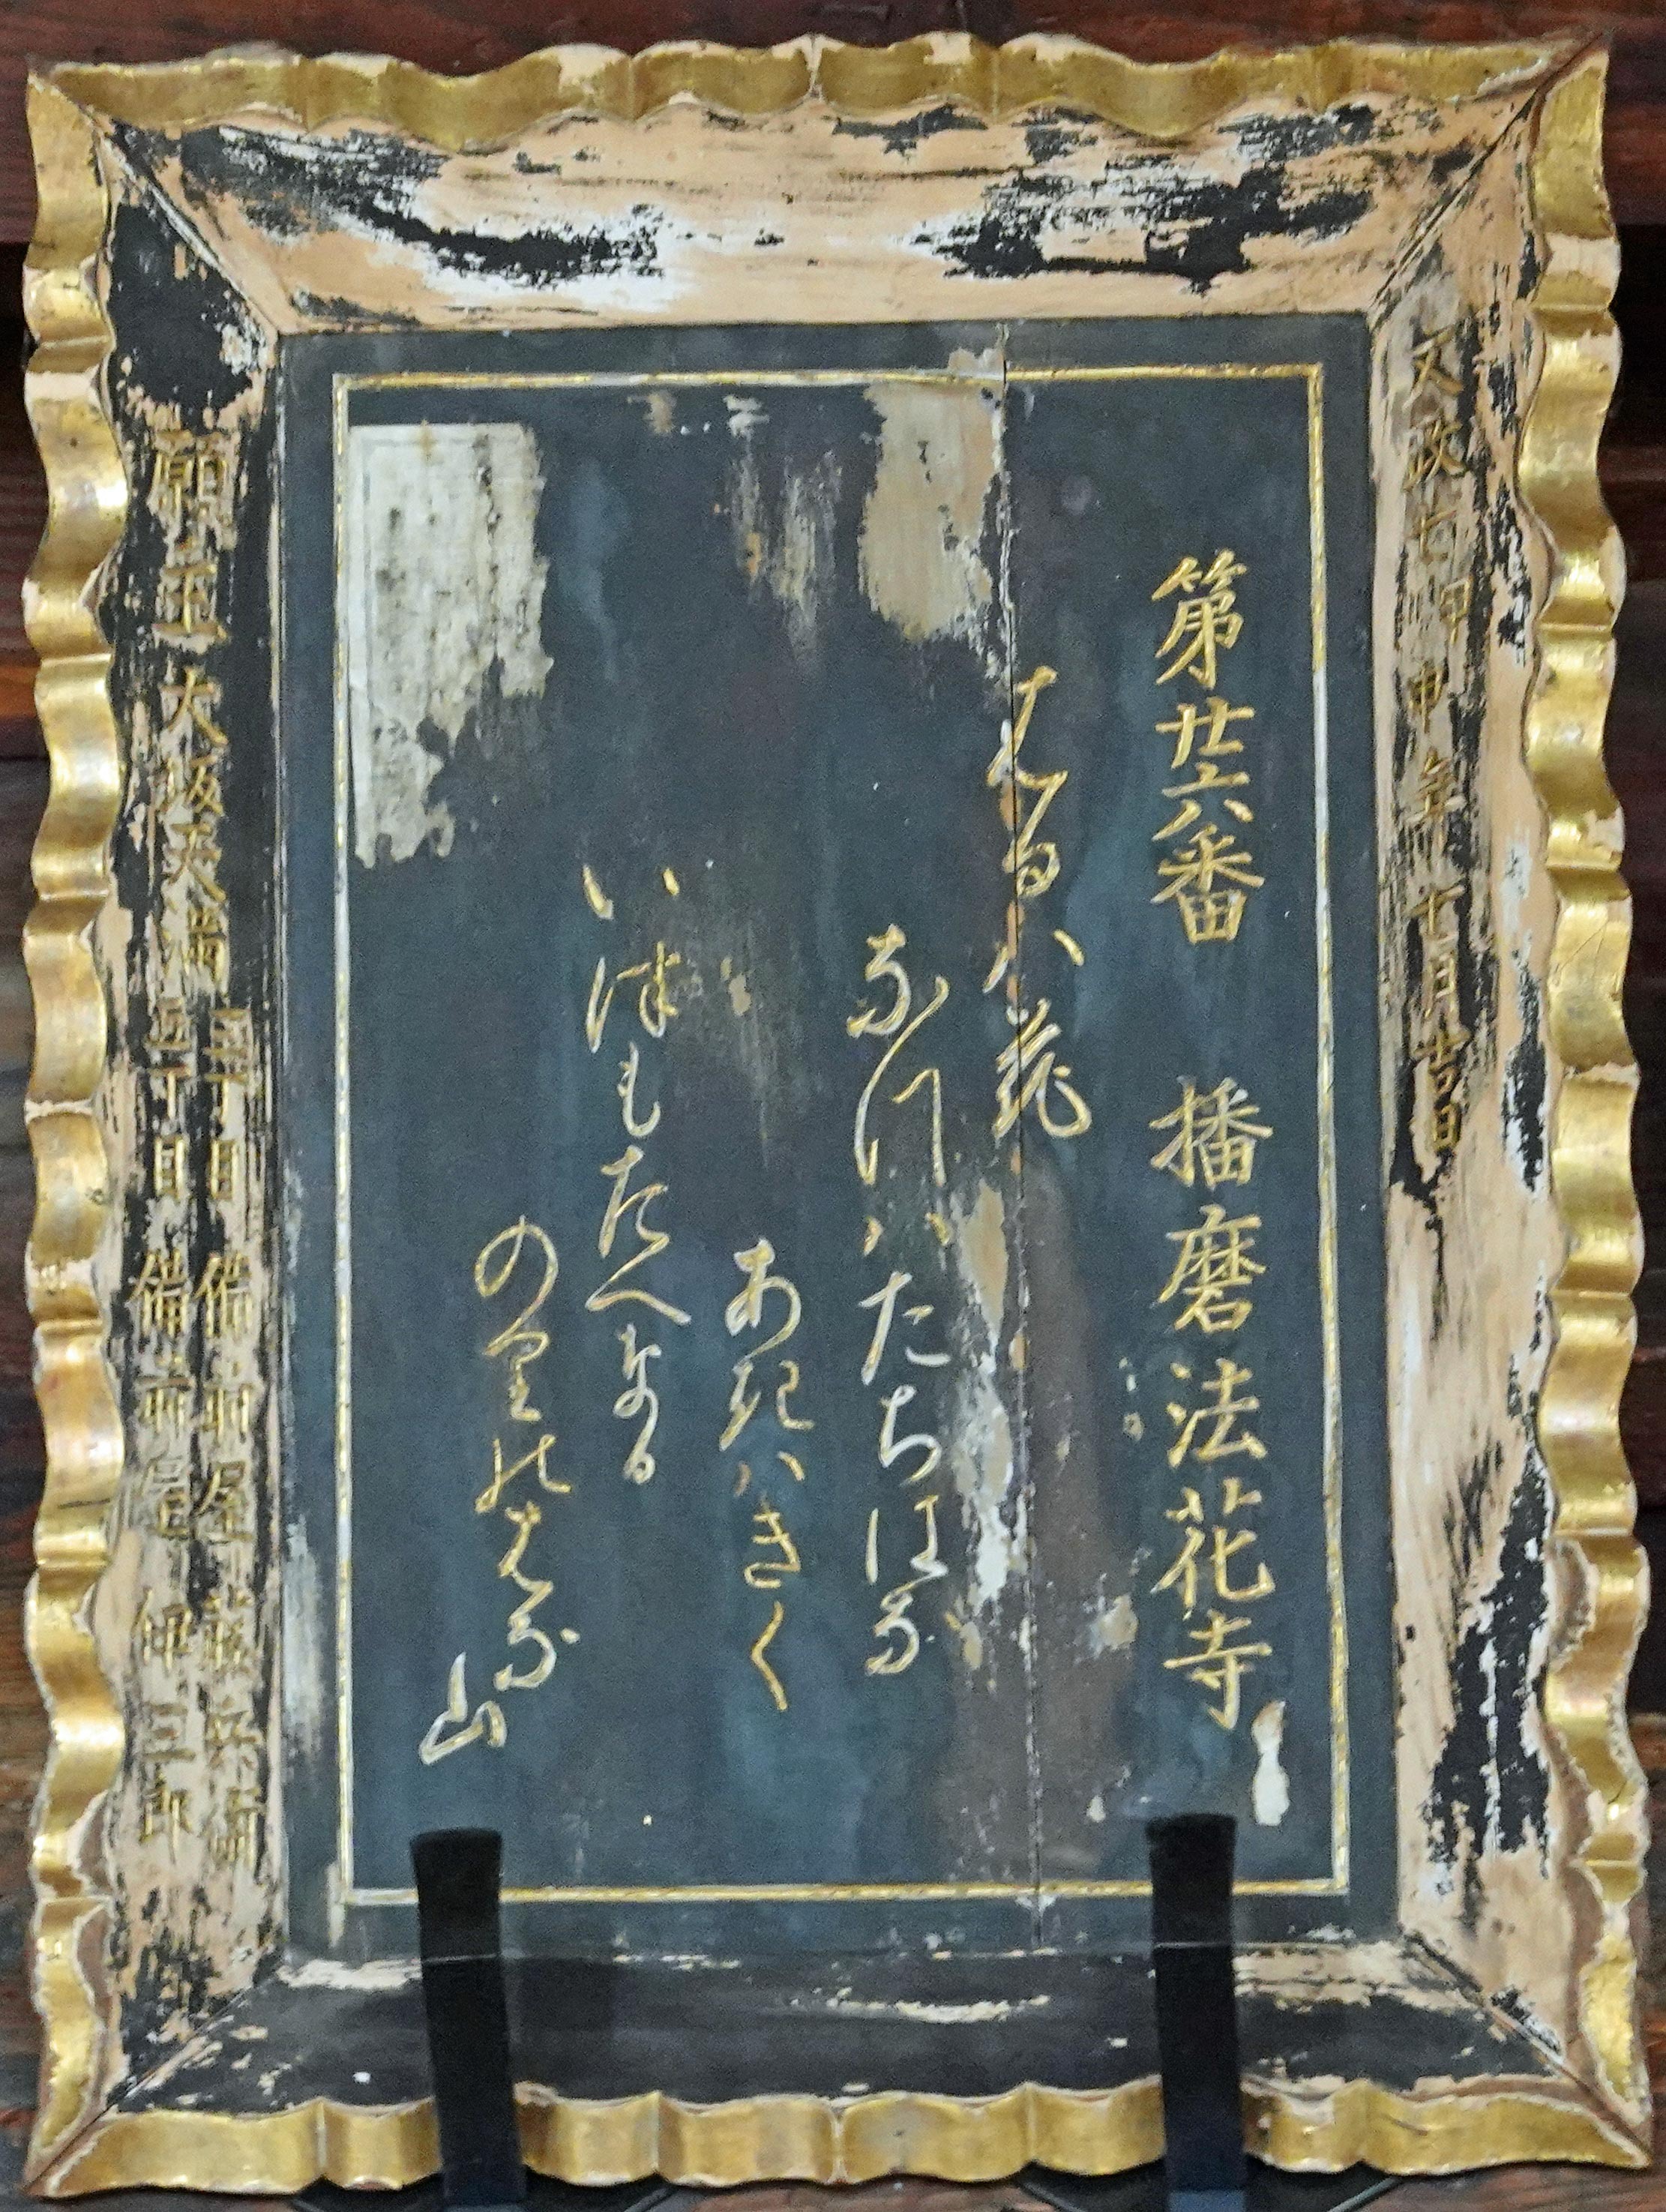 文政七甲申年十月吉日
第廿六番 播磨法花寺
はるハ花
なつハたちはな
あきハきく
いつもたへなる
のりのはな
山
願主 大坂天満
三丁目 備前屋 兵衛
五丁目 備前屋 伊三郎